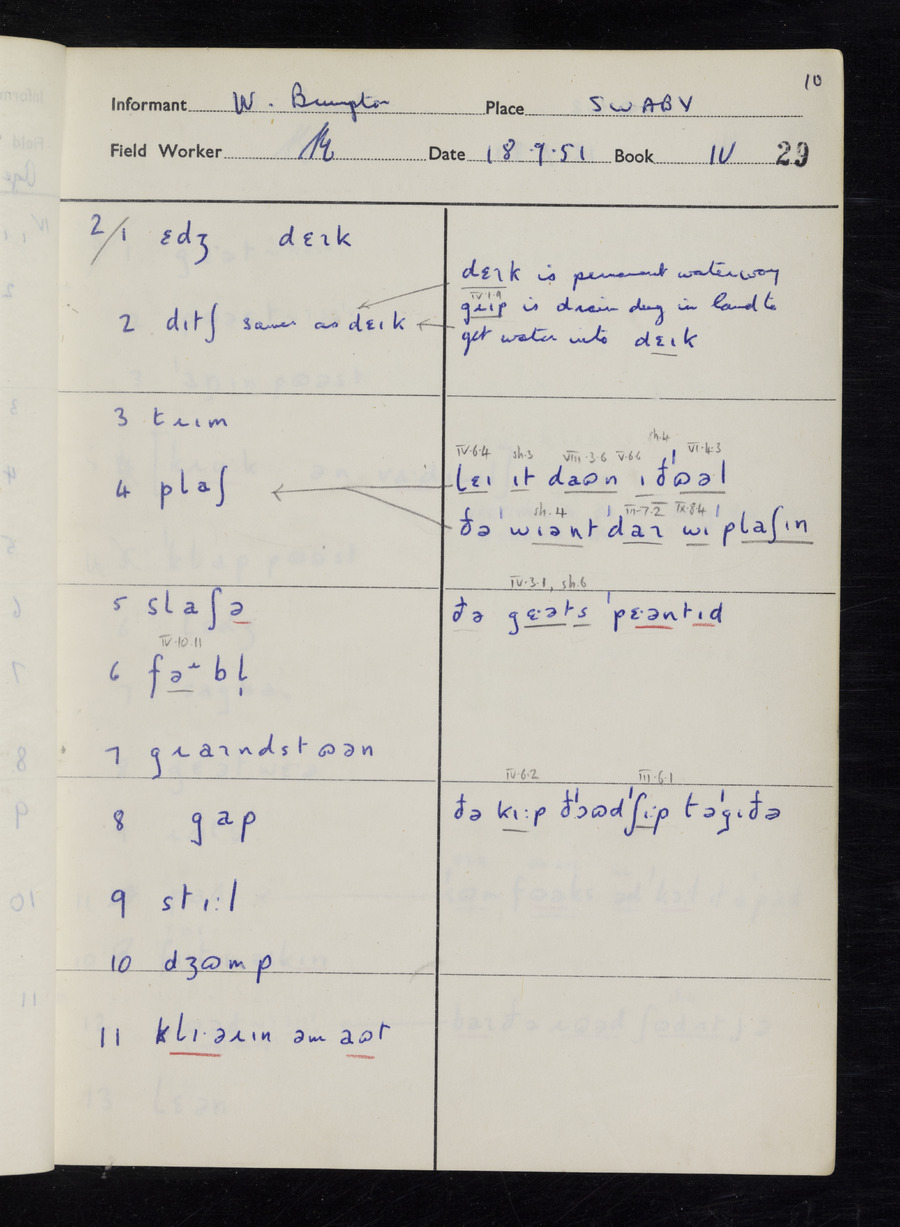 10
Informant W. Brumpton Place SWABY
Field Worker Date 18.9.51 Book IV 29
2/1 ɛdʒ dɛɪk
2 dɪtʃ same as dɛɪk
dɛɪk is permanent waterway
IV.1.9
gɹip is drain dug in land to
get water into dɛɪk
3 tɹɪm
4 plaʃ
IV.6.4 sh.3 VIII.3.6 V.6.6 sh.4 VI.4.3
lɛɪ ɪt daʊn ɪ ðˈʊəl
sh.4 III.7.2 IX.8.4
ðə ˈwɪənt ˈdaɪ wɪ ˈplaʃɪn
5 slaʃə
IV.3.1, sh.6
ðə gɛ·əts ˈpɛ·əntɪd
IV.10.11
6 fəɹbl̩
7 gɹaɪndstʊən
8 gap
IV.6.2 III.6.1
ðə kɪ:p ðˈɔʊd ˈʃɪ:p təˈgɪðə
9 stɪ:l
10 dʒʊmp
11 klɪ·əɹɪn əm aʊt